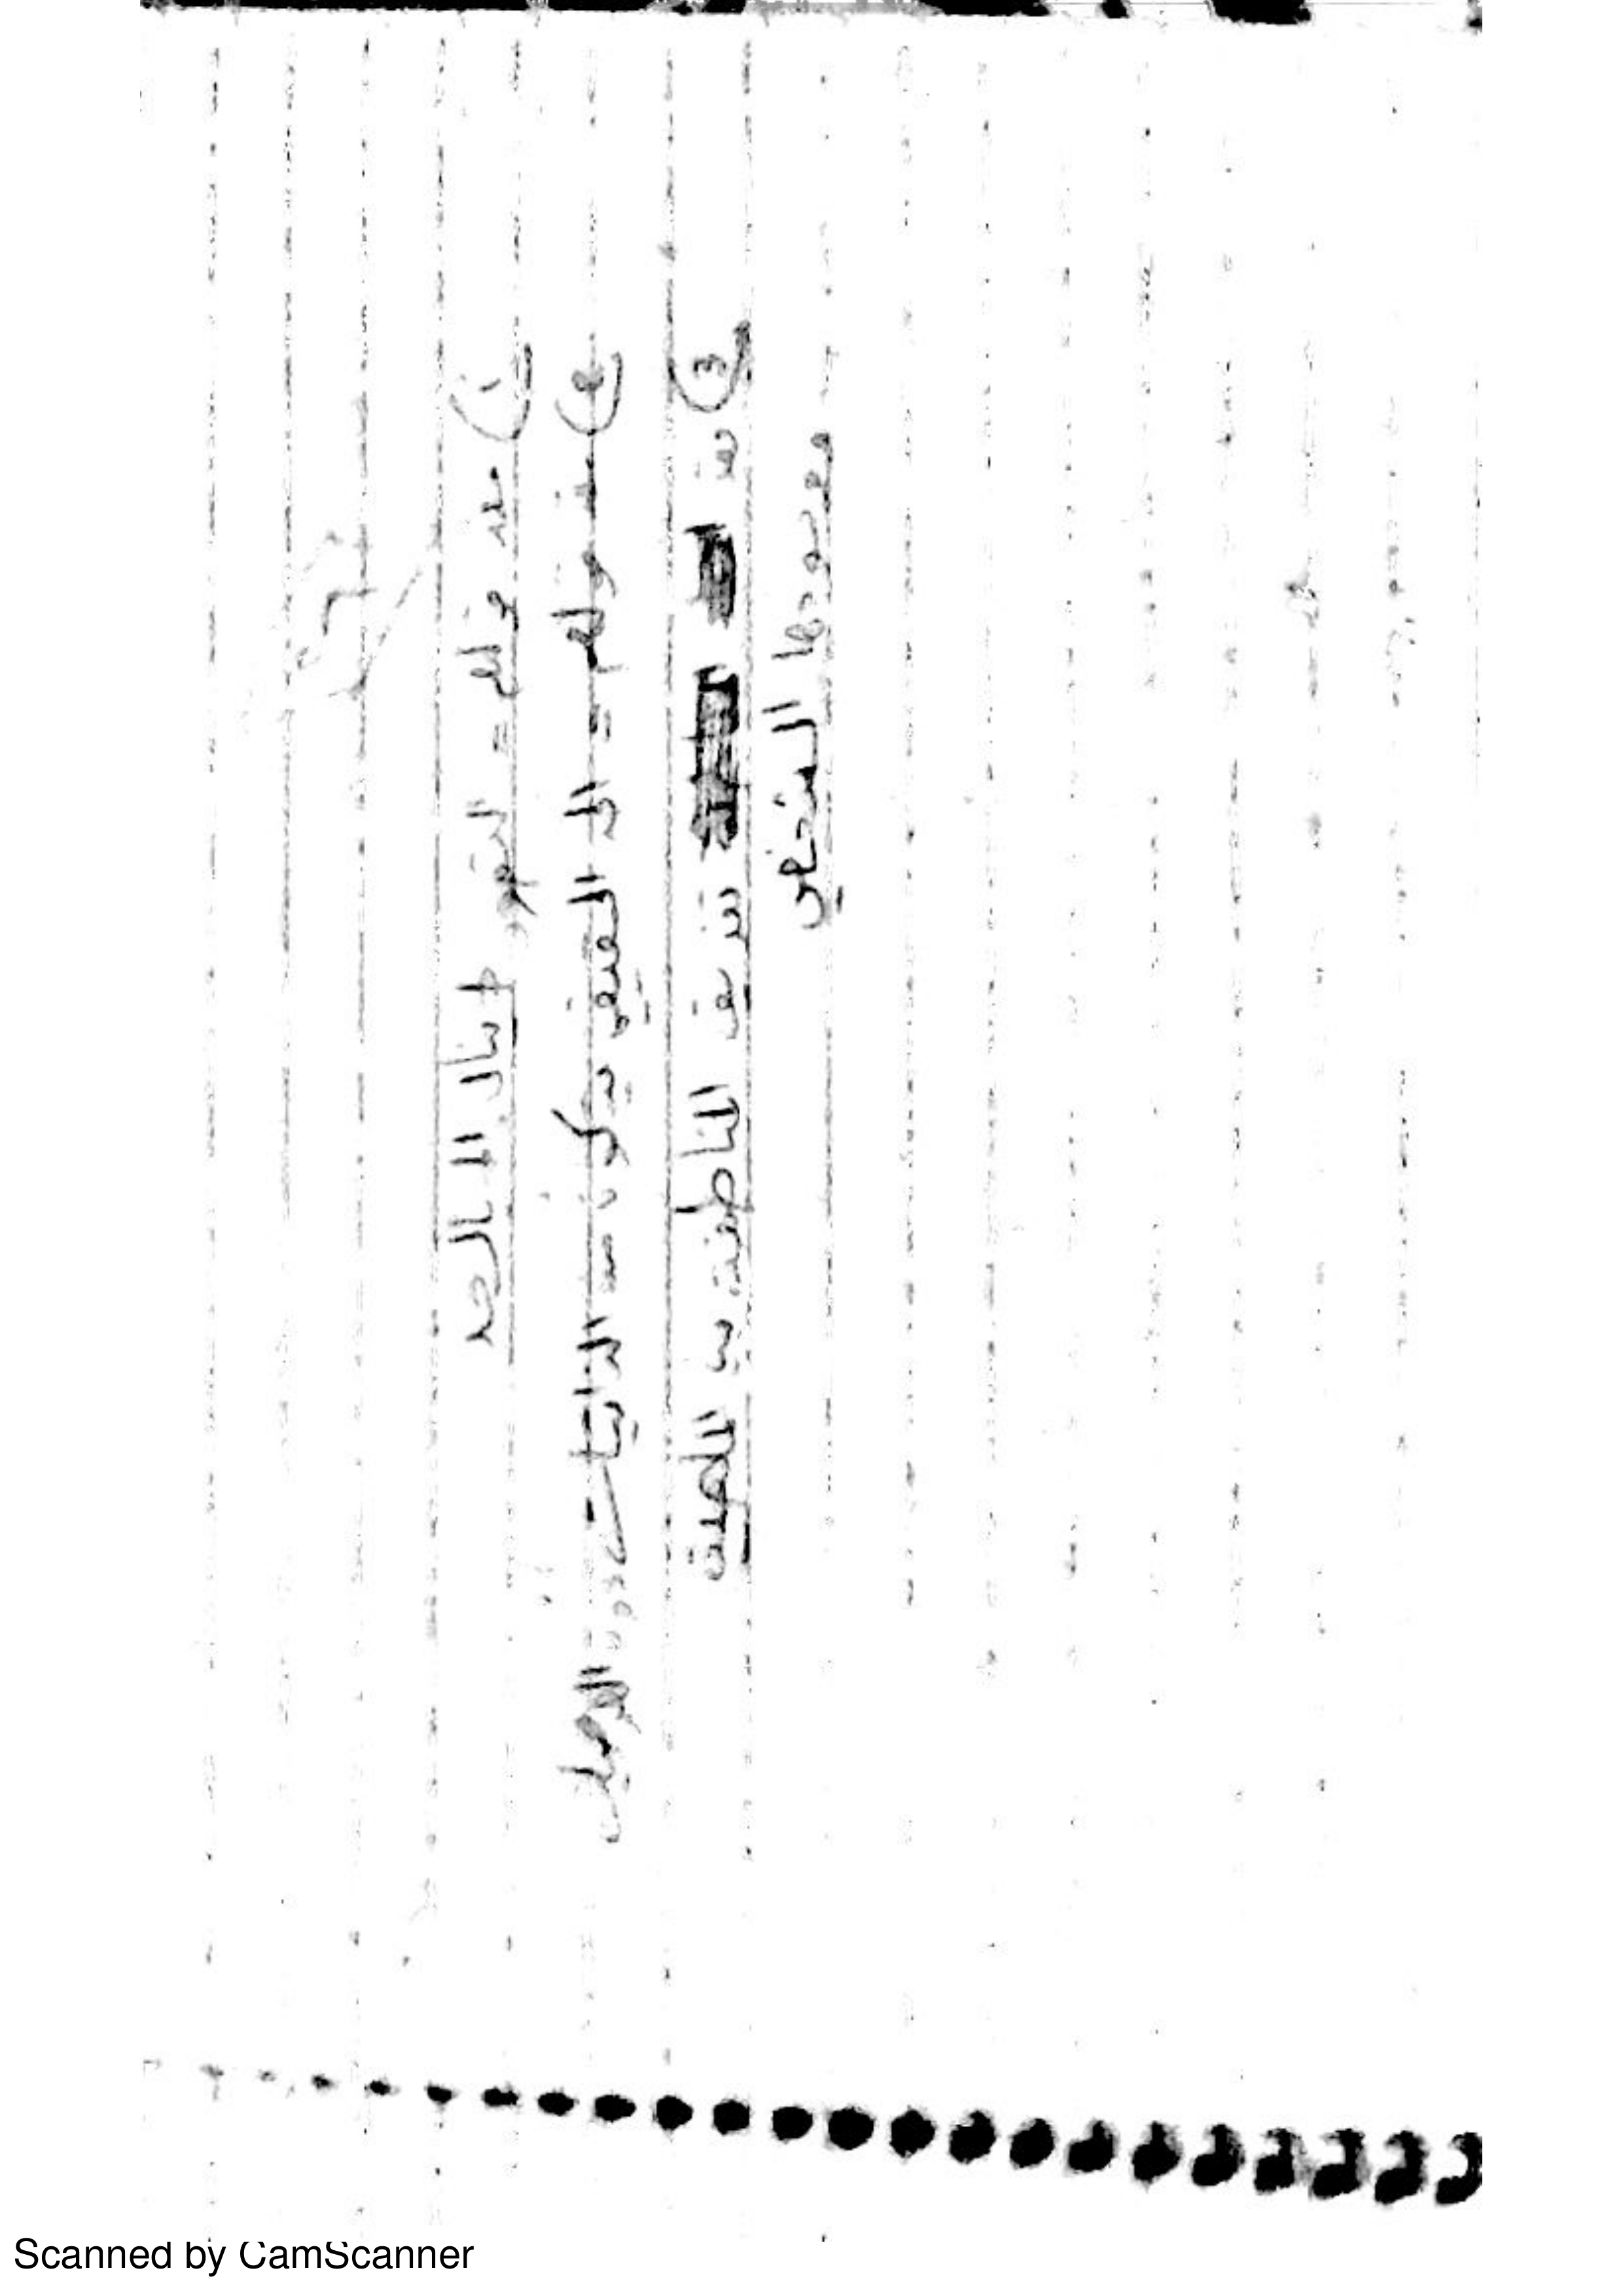 1) هذه قولهم = التصور لا ينال الا بالحد
2) هذه قولهم = الحد الحقيقي يكون من الذاتيات دون العرضيات
3) هذه تفريق المناطقة بين الماهية
ووجودها الشخصي
Scanned by CamScanner